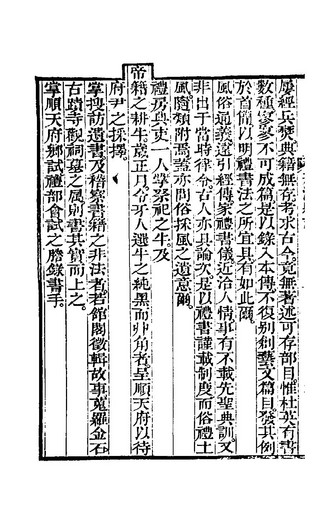 屢經兵燹典籍無存考求古今竟無著述可存部目惟杜英有書
數種寥寥不可成篇是以錄入本傳不復別剏藝文篇目發其例
於首簡以明禮書法之所宜具有如此爾
風俗通義遠引經傳家禮書儀近洽人情事有不載先聖典訓又
非出于當時律令古人亦具論次是以禮書謹載制度而俗禮土
風隨類附焉蓋亦問俗採風之遺意爾
禮房典吏一人掌祭祀之牛及
帝籍之耕牛歲正月令牙人選牛之純黑而丱角者呈順天府以待
府尹之採擇
掌搜訪遺書及稽察書籍之非法者若館閣徵輯故事蒐羅金石
古蹟寺觀祠墓之屬則書其實而上之
掌順天府鄉試禮部會試之謄錄書手